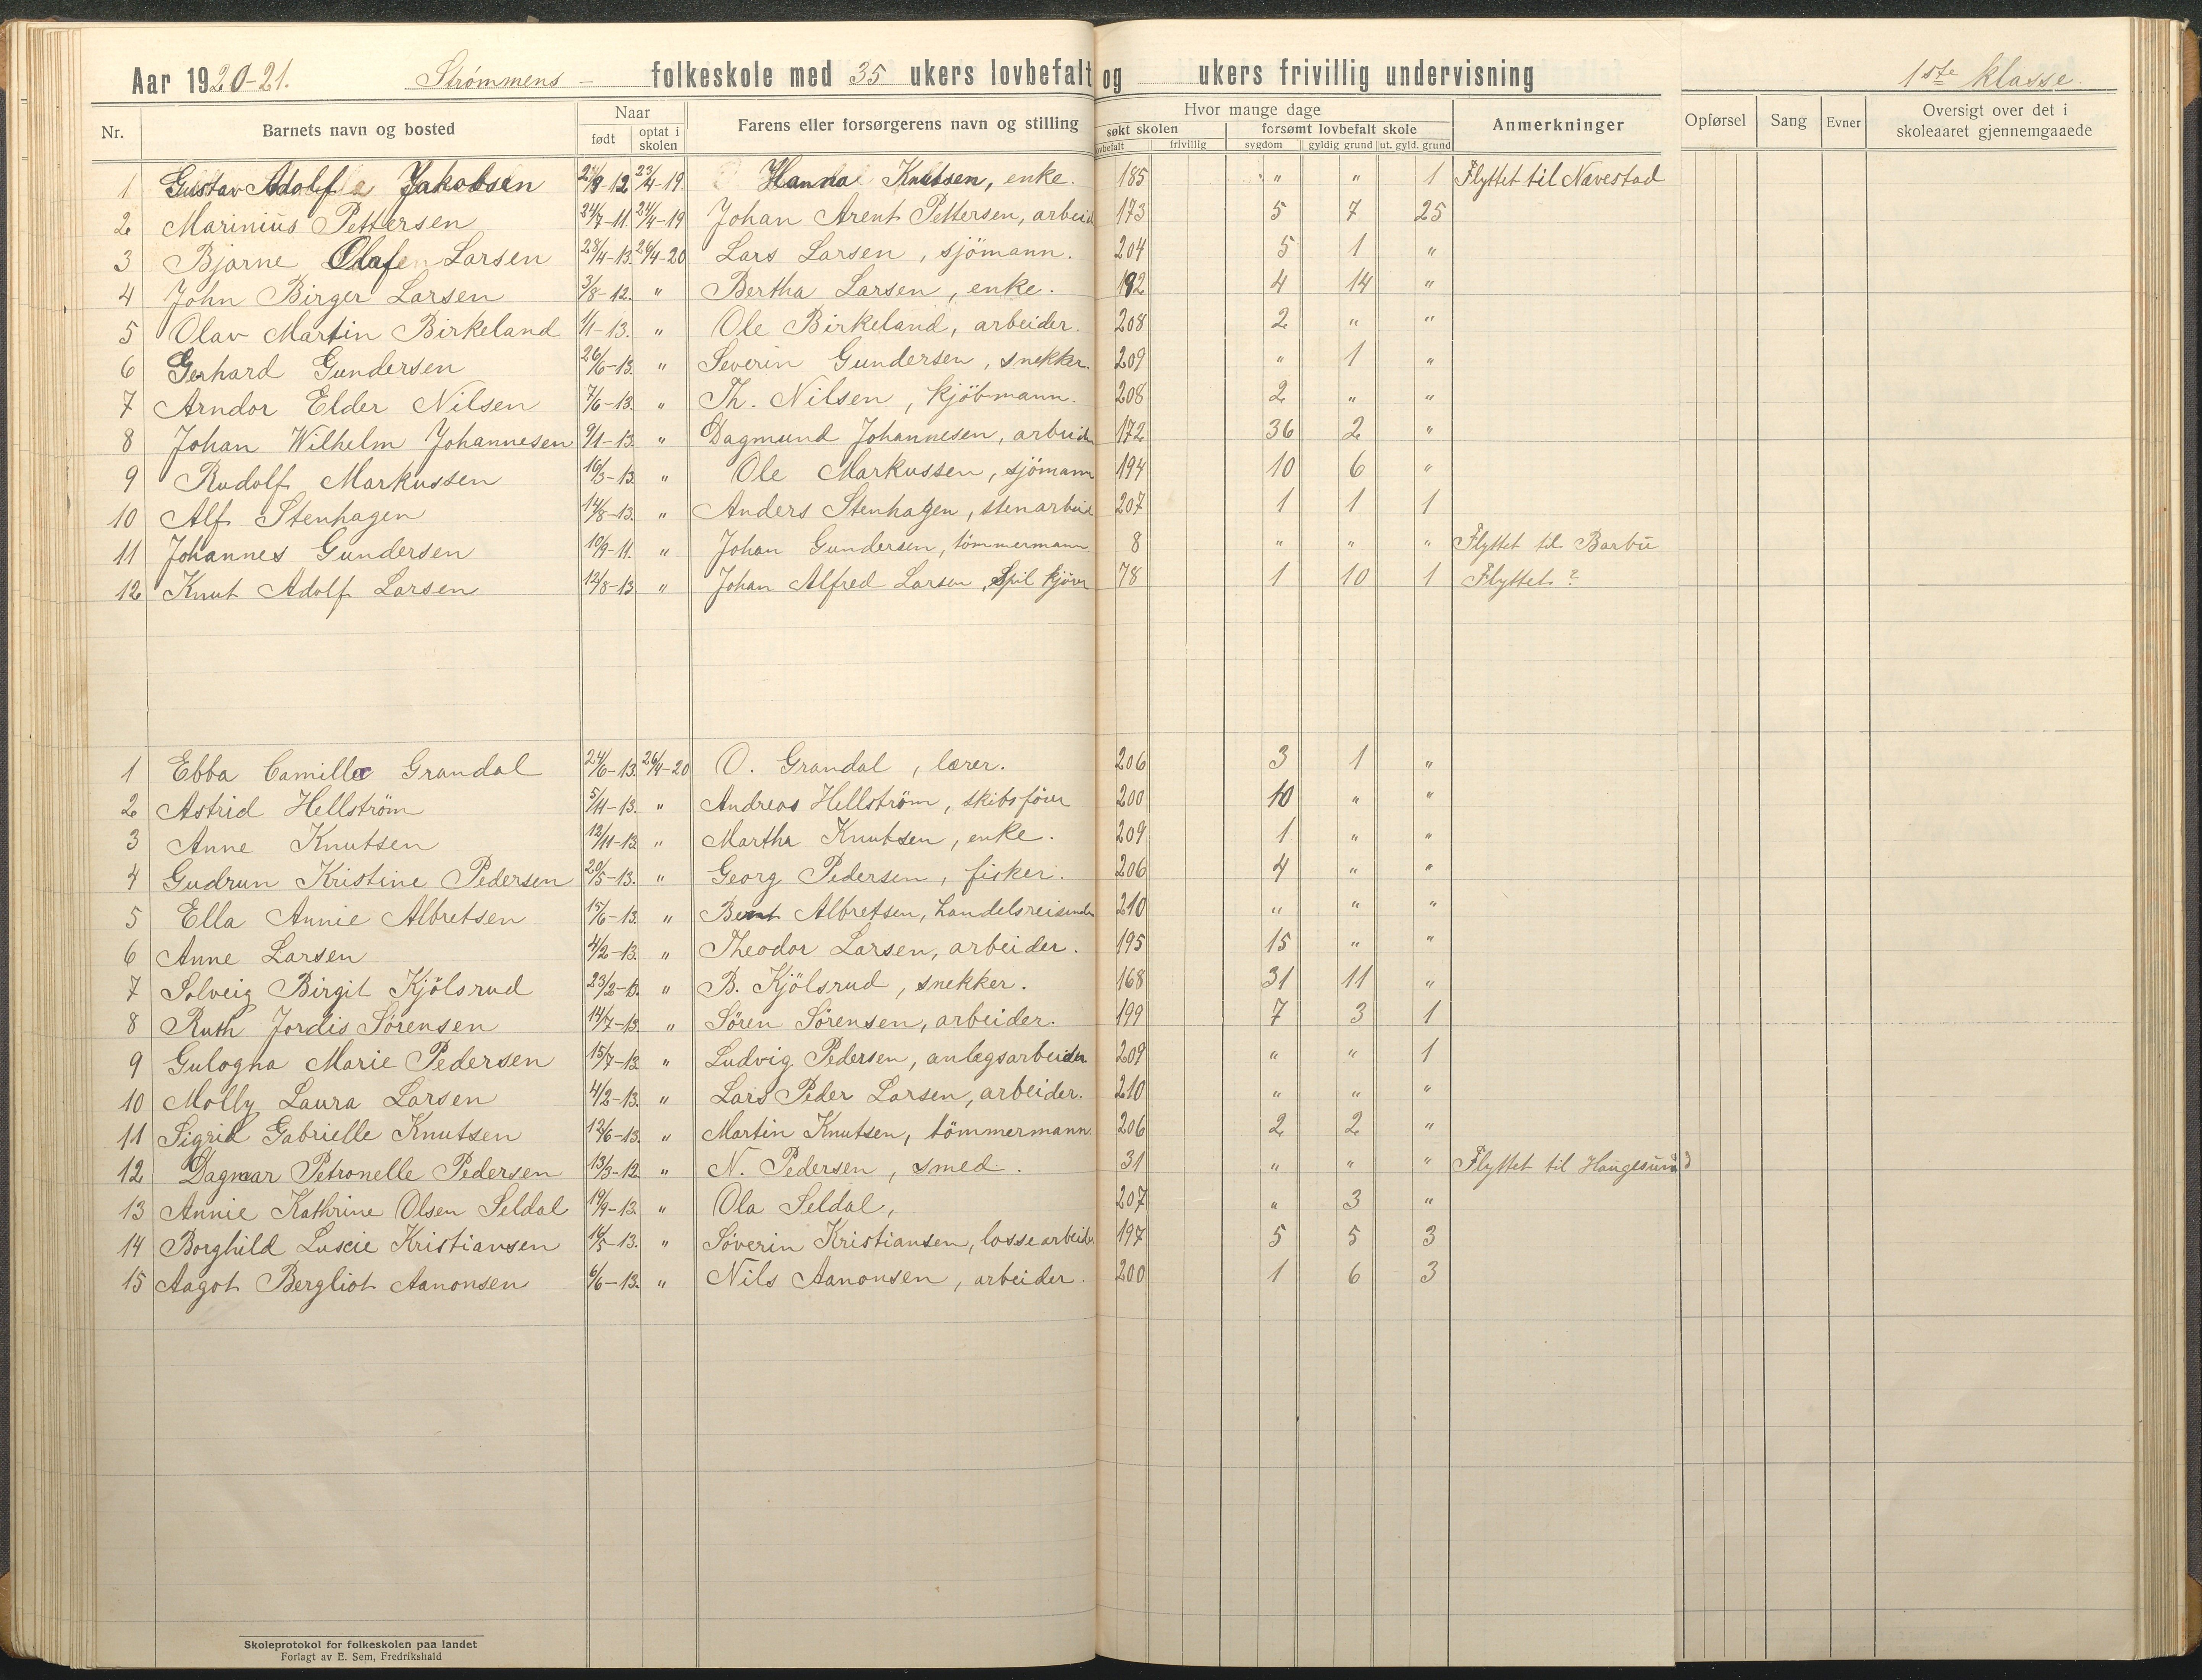 Aar 1920-21. Strømmens - folkeskole med 35 ukers lovbefalt og ukers frivillig undervisning 1ste klasse.
Nr. Barnets navn og bosted Naar født optat i skolen Farens eller forsørgerens navn og stilling Hvor mange dage søkt skolen lovbefalt frivillig forsømt lovbefalt skole sygdom gyldig grund ut. gyld. grund Anmerkninger Opførsel Sang Evner Oversigt over det i skoleaaret gjennemgaaede
1 Gustav Adolf Jakobsen 23/4-19 Hanna Knutsen, enke. 185 " " 1 Flyttet til Nævestad
2 Marinius Pettersen 24/7-11. 24/4-19 Johan Arent Pettersen, arbeid 173 5 7 25
3 Bjarne Olaf Larsen 28/4-13. 26/4-20 Lars Larsen, sjömann. 204 5 1 "
4 John Birger Larsen 3/8-12. " Bertha Larsen, enke. 192 4 14 "
5 Olav Martin Birkeland 1/1-13. " Ole Birkeland, arbeider. 208 2 " "
6 Gerhard Gundersen 26/6-13. " Severin Gundersen, snekker. 209 " 1 "
7 Arndor Elder Nilsen 7/6-13. " Th. Nilsen, kjöbmann. 208 2 " "
8 Johan Wilhelm Johannesen 9/1-13. " Dagmund Johannesen, arbeider 172 36 2 "
9 Rudolf Markussen 16/3-13. " Ole Markussen, sjömann 194 10 6 "
10 Alf Stenhagen 14/8-13. " Anders Stenhagen, stenarbeid 207 1 1 1
11 Johannes Gundersen 10/9-11. " Johan Gundersen, tömmermann 8 " " " Flyttet til Barbu
12 Knut Adolf Larsen 12/8-13. " Johan Alfred Larsen, Spil kjörer 78 1 10 1 Flyttet?
1 Ebba Camilla Grandal 24/6-13. 26/4-20 O. Grandal, lærer. 206 3 1 "
2 Astrid Hellström 5/11-13. " Andreas Hellström, skibsförer 200 10 " "
3 Anne Knutsen 12/11-13. " Martha Knutsen, enke. 209 1 " "
4 Gudrun Kristine Pedersen 20/5-13. " Georg Pedersen, fisker. 206 4 " "
5 Ella Annie Albretsen 15/6-13. " Bernt Albretsen, handelsreisende 210 " " "
6 Anne Larsen 4/2-13. " Theodor Larsen, arbeider. 195 15 " "
7 Solveig Birgit Kjölsrud 23/2-13. " B. Kjölsrud, snekker. 168 31 11 "
8 Ruth Jordis Sörensen 14/7-13. " Sören Sörensen, arbeider. 199 7 3 1
9 Gulogna Marie Pedersen 15/7-13. " Ludvig Pedersen, anlegsarbeider 209 " " 1
10 Molly Laura Larsen 4/2-13. " Lars Peder Larsen, arbeider. 210 " " "
11 Sigrid Gabrielle Knutsen 12/6-13. " Martin Knutsen, tömmermann 206 2 2 "
12 Dagmar Petronelle Pedersen 13/3-12. " N. Pedersen, smed. 31 " " " Flyttet til Haugesund
13 Annie Kathrine Olsen Seldal 19/9-13. " Ola Seldal, 207 " 3 "
14 Borghild Luscie Kristiansen 16/5-13. " Söverin Kristiansen, lossearbeider 197 5 5 3
15 Aagot Bergliot Aanonsen 6/6-13. " Nils Aanonsen, arbeider. 200 1 6 3
Skoleprotokol for folkeskolen paa landet
Forlagt av E. Sem, Fredrikshald